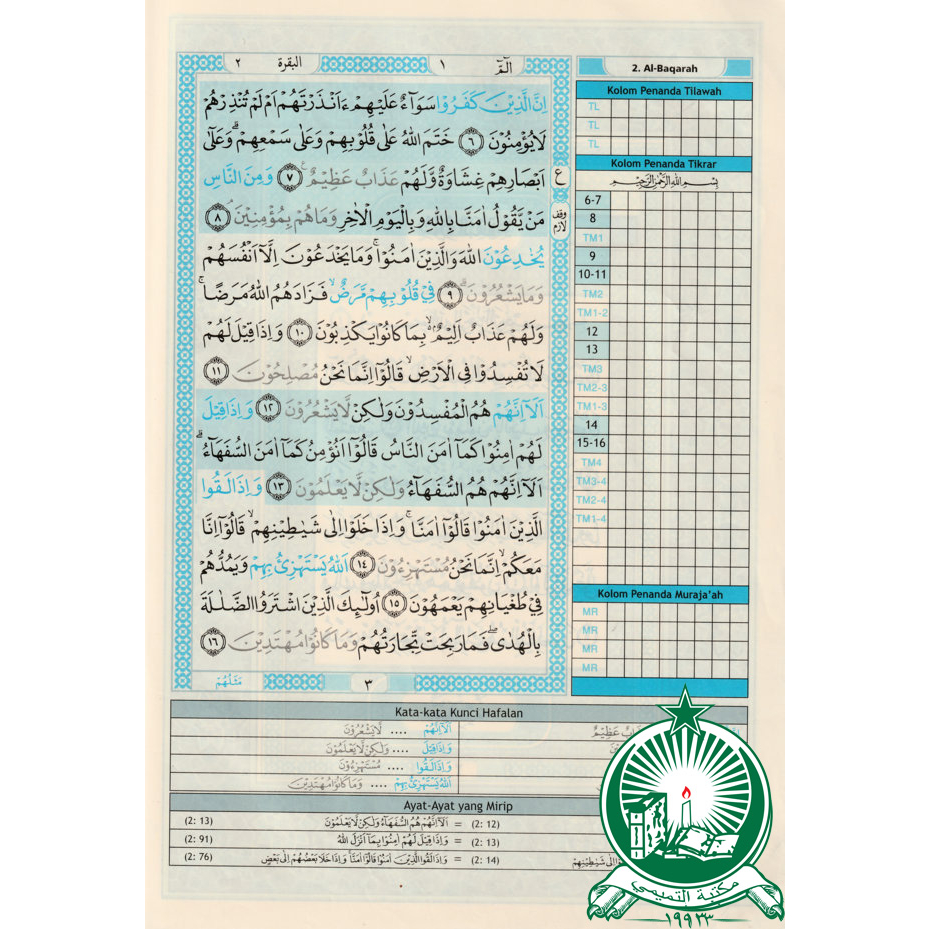 البقرة ٢
١
الٓمّٓ
2. Al-Baqarah
اِنَّ الَّذِيْنَ كَفَرُوْا سَوَاۤءٌ عَلَيْهِمْ ءَاَنْذَرْتَهُمْ اَمْ لَمْ تُنْذِرْهُمْ
لَا يُؤْمِنُوْنَ ﴿٦﴾ خَتَمَ اللّٰهُ عَلٰى قُلُوْبِهِمْ وَعَلٰى سَمْعِهِمْ ۗ وَعَلٰٓى
اَبْصَارِهِمْ غِشَاوَةٌ وَّلَهُمْ عَذَابٌ عَظِيْمٌ ﴿٧﴾ وَمِنَ النَّاسِ
ع
مَنْ يَّقُوْلُ اٰمَنَّا بِاللّٰهِ وَبِالْيَوْمِ الْاٰخِرِ وَمَا هُمْ بِمُؤْمِنِيْنَ ۘ ﴿٨﴾
وقف لازم
يُخٰدِعُوْنَ اللّٰهَ وَالَّذِيْنَ اٰمَنُوْا ۚ وَمَا يَخْدَعُوْنَ اِلَّآ اَنْفُسَهُمْ
وَمَا يَشْعُرُوْنَ ۗ ﴿٩﴾ فِيْ قُلُوْبِهِمْ مَّرَضٌ ۙ فَزَادَهُمُ اللّٰهُ مَرَضًا ۚ
وَلَهُمْ عَذَابٌ اَلِيْمٌ ۢ ەۙ بِمَا كَانُوْا يَكْذِبُوْنَ ﴿١٠﴾ وَاِذَا قِيْلَ لَهُمْ
لَا تُفْسِدُوْا فِى الْاَرْضِ ۙ قَالُوْٓا اِنَّمَا نَحْنُ مُصْلِحُوْنَ ﴿١١﴾
اَلَآ اِنَّهُمْ هُمُ الْمُفْسِدُوْنَ وَلٰكِنْ لَّا يَشْعُرُوْنَ ﴿١٢﴾ وَاِذَا قِيْلَ
لَهُمْ اٰمِنُوْا كَمَآ اٰمَنَ النَّاسُ قَالُوْٓا اَنُؤْمِنُ كَمَآ اٰمَنَ السُّفَهَاۤءُ ۗ
اَلَآ اِنَّهُمْ هُمُ السُّفَهَاۤءُ وَلٰكِنْ لَّا يَعْلَمُوْنَ ﴿١٣﴾ وَاِذَا لَقُوا
الَّذِيْنَ اٰمَنُوْا قَالُوْٓا اٰمَنَّا ۚ وَاِذَا خَلَوْا اِلٰى شَيٰطِيْنِهِمْ ۙ قَالُوْٓا اِنَّا
مَعَكُمْ ۙ اِنَّمَا نَحْنُ مُسْتَهْزِءُوْنَ ﴿١٤﴾ اَللّٰهُ يَسْتَهْزِئُ بِهِمْ وَيَمُدُّهُمْ
فِيْ طُغْيَانِهِمْ يَعْمَهُوْنَ ﴿١٥﴾ اُولٰۤىِٕكَ الَّذِيْنَ اشْتَرَوُا الضَّلٰلَةَ
بِالْهُدٰى ۖ فَمَا رَبِحَتْ تِّجَارَتُهُمْ وَمَا كَانُوْا مُهْتَدِيْنَ ﴿١٦﴾
٣
مَثَلُهُمْ
Kolom Penanda Tilawah
TL
TL
TL
Kolom Penanda Tikrar
بِسْمِ اللّٰهِ الرَّحْمٰنِ الرَّحِيْمِ
6-7
8
TM1
9
10-11
TM2
TM1-2
12
13
TM3
TM2-3
TM1-3
14
15-16
TM4
TM3-4
TM2-4
TM1-4
Kolom Penanda Muraja'ah
MR
MR
MR
MR
Kata-kata Kunci Hafalan
ابٌ عَظِيْمٌ
اَلَآ اِنَّهُمْ .... لَّا يَشْعُرُوْنَ
وَاِذَا قِيْلَ .... وَلٰكِنْ لَّا يَعْلَمُوْنَ
وَاِذَا لَقُوا .... مُسْتَهْزِءُوْنَ
اَللّٰهُ يَسْتَهْزِئُ بِهِمْ .... وَمَا كَانُوْا مُهْتَدِيْنَ
Ayat-Ayat yang Mirip
(2: 12) = اَلَآ اِنَّهُمْ هُمُ السُّفَهَاۤءُ وَلٰكِنْ لَّا يَعْلَمُوْنَ (2: 13)
(2: 13) = وَاِذَا قِيْلَ لَهُمْ اٰمِنُوْا بِمَآ اَنْزَلَ اللّٰهُ (2: 91)
اِلٰى شَيٰطِيْنِهِمْ (2: 14) = وَاِذَا لَقُوا الَّذِيْنَ اٰمَنُوْا قَالُوْٓا اٰمَنَّا وَاِذَا خَلَا بَعْضُهُمْ اِلٰى بَعْضٍ (2: 76)
مكتبة التميمي